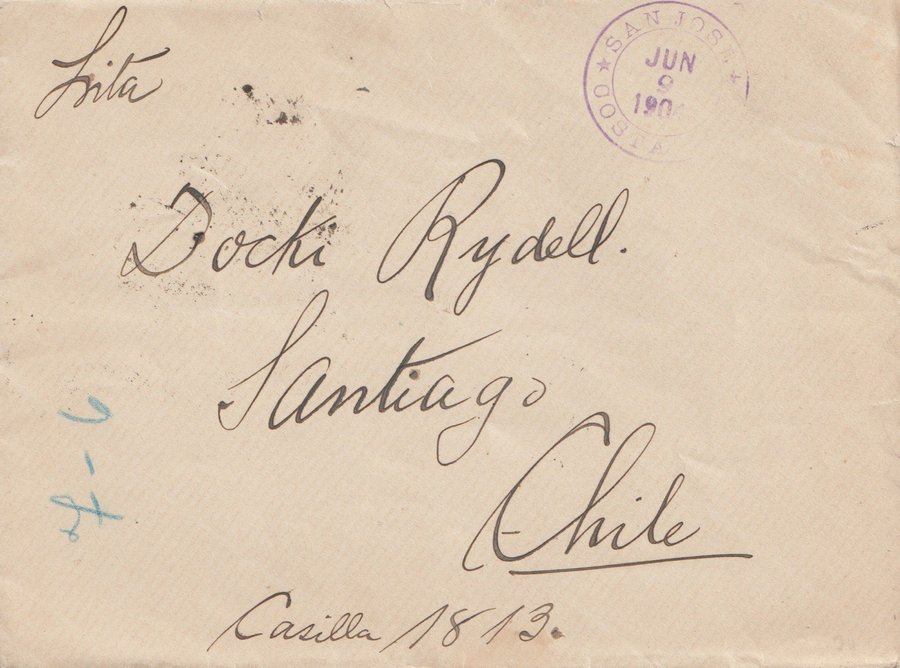 Lita
SAN JOSE
JUN
9
190
COSTA
Docki Rydell.
Santiago
Chile
Casilla 1813.